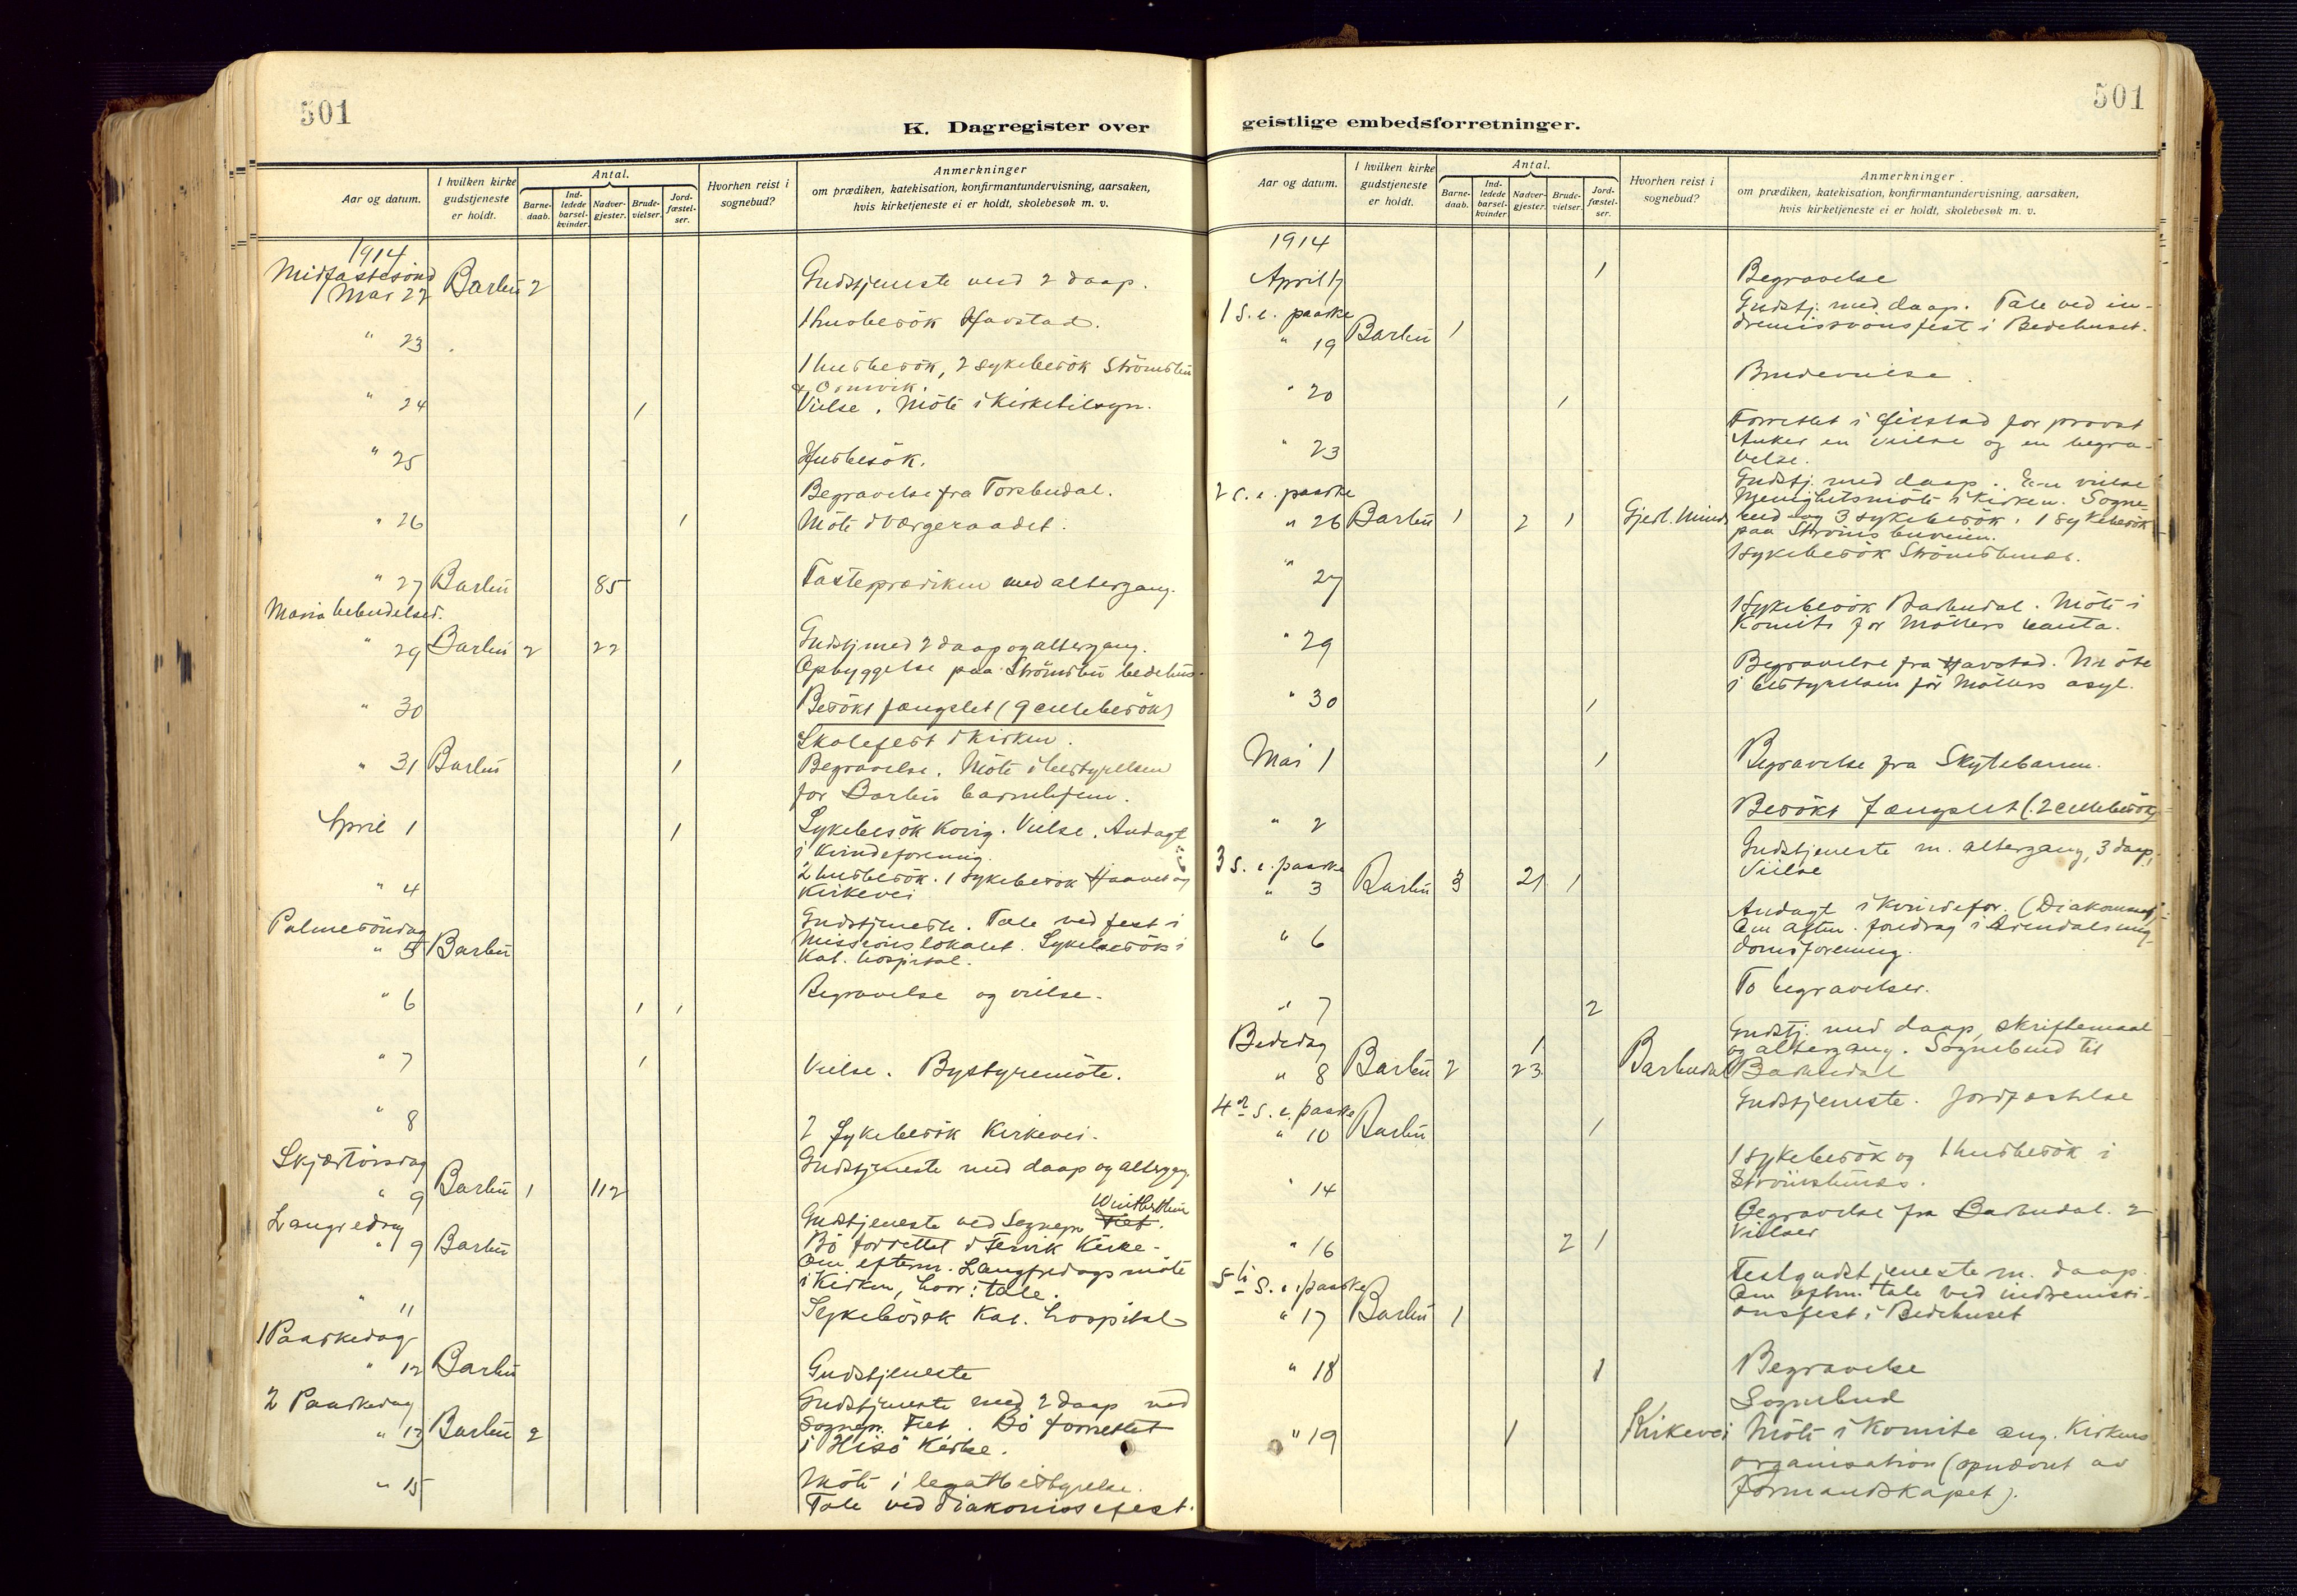 501
K. Dagregister over
Aar og datum.
I hvilken kirke gudstjeneste er holdt.
Antal.
Barne-daab.
Ind-ledede barsel-kvinder.
Nadver-gjester.
Brude-vielser.
Jord-fæstel-ser.
Hvorhen reist i sognebud?
Anmerkninger
om prædiken, katekisation, konfirmantundervisning, aarsaken,
hvis kirketjeneste ei er holdt, skolebesøk m. v.
1914
Midfastesönd
Mar 22 Barbu 2 Gudstjeneste med 2 daap.
" 23 1 husbesök Havstad.
1 husbesök, 2 sykebesök Strömsbu
" 24 1 Vielse. Möte i Kirketilsyn.
" 25 Husbesök.
Begravelse fra Torsbudal.
" 26 1 Möte i Værgeraadet.
" 27 Barbu 85 Fasteprædiken med altergang.
Maria bebudelsesd.
" 29 Barbu 2 22 Gudstj med 2 daap og altergang.
Opbyggelse paa Strömsbu bedehus.
" 30 Besökt fængslet (9 cellebesök)
Skolefest i Kirken.
" 31 Barbu 1 Begravelse. Möte i bestyrelsen
for Barbu barnehjem.
April 1 1 Sykebesök Kovig. Vielse. Andagt
i Kvindeforening.
2 husbesök. 1 sykebesök
" 4 Kirkevei
Palmesöndag Gudstjeneste. Tale ved fest i
" 5 Barbu Missionslokalet. Sykebesök i
Kat. hospital.
" 6 1 1 Begravelse og vielse.
" 7 1 Vielse. Bystyremöte.
" 8 2 Sykebesök Kirkevei.
Skjærtorsdag Gudstjeneste med daap og altergang.
" 9 Barbu 1 112
Langfredag Gudstjeneste ved Sognepr.
" 9 Barbu Bö forrettet i Fevik Kirke.
Om efterm. Langfredagsmöte
i Kirken, hvor: tale.
" 11 Sykebesök Kat. hospital
1 Paaskedag
" 12 Barbu Gudstjeneste
2 Paaskedag Gudstjeneste med 2 daap ved
" 13 Barbu 2 Sognepr. Bö forrettet
i Hisö Kirke.
" 15 Möte i legatbestyrelse.
Tale ved Diakonissefest.
501
geistlige embedsforretninger.
Aar og datum.
I hvilken kirke gudstjeneste er holdt.
Antal.
Barne-daab.
Ind-ledede barsel-kvinder
Nadver-gjester.
Brude-vielser.
Jord-fæstel-ser.
Hvorhen reist i sognebud?
Anmerkninger
om prædiken, katekisation, konfirmantundervisning, aarsaken,
hvis kirketjeneste ei er holdt, skolebesøk m. v.
1914
April 17 1 Begravelse
1 S. e. paaske Gudstj. med daap. Tale ved in-
" 19 Barbu 1 dremissionsfest i Bedehuset.
" 20 1 Brudevielse.
Forrettet i for provst
" 23 Anker en vielse og en begra-
velse.
2 S. e. paaske Gudstj. med daap. En vielse
Menighetsmöte i Kirken. Sogne-
" 26 Barbu 1 2 1 bud og 3 sykebesök. 1 sykebesök
paa Strömsbuveien.
" 27 1 sykebesök Strömsbunes.
1 Sykebesök Barbudal. Möte i
" 29 Komite for Möllers
Begravelse fra Havstad. Möte
" 30 1 i bestyrelsen for Möllers asyl.
Mai 1 1 Begravelse fra Skytebanen.
" 2 Besökt Fængslet (2 cellebesök)
3 S. e. paaske Gudstjeneste m. altergang, 3 daap,
" 3 Barbu 3 21 1 Vielse
Andagt i kvindefor. (Diakonisse)
" 6 Om aften. foredrag i Arendals ung-
domsforening.
" 7 2 To begravelser.
Bededag 1 Gudstj. med daap, skriftemaal
og altergang. Sognebud til
" 8 Barbu 2 23 Barbudal Barbudal
4de S. e. paaske Gudstjeneste. Jordfæstelse
" 10 Barbu 1
1 sykebesök og 1 husbesök i
" 14 Strömsbunes.
Begravelse fra Barbudal. 2
" 16 2 1 Vielser
5te S. e. paaske Festgudstjeneste m. daap.
Om eftm. tale ved indremissi-
" 17 Barbu 1 onsfest i Bedehuset
" 18 1 Begravelse
Sognebud
" 19 1 Kirkevei Möte i Komite ang. Kirkens
organisation (opnævnt av
Formandskapet).